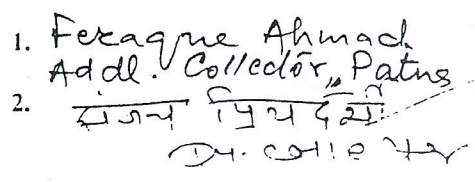 1. Feraque Ahmad
Addl. Collector, Patna
2. संजय प्रियदर्शी